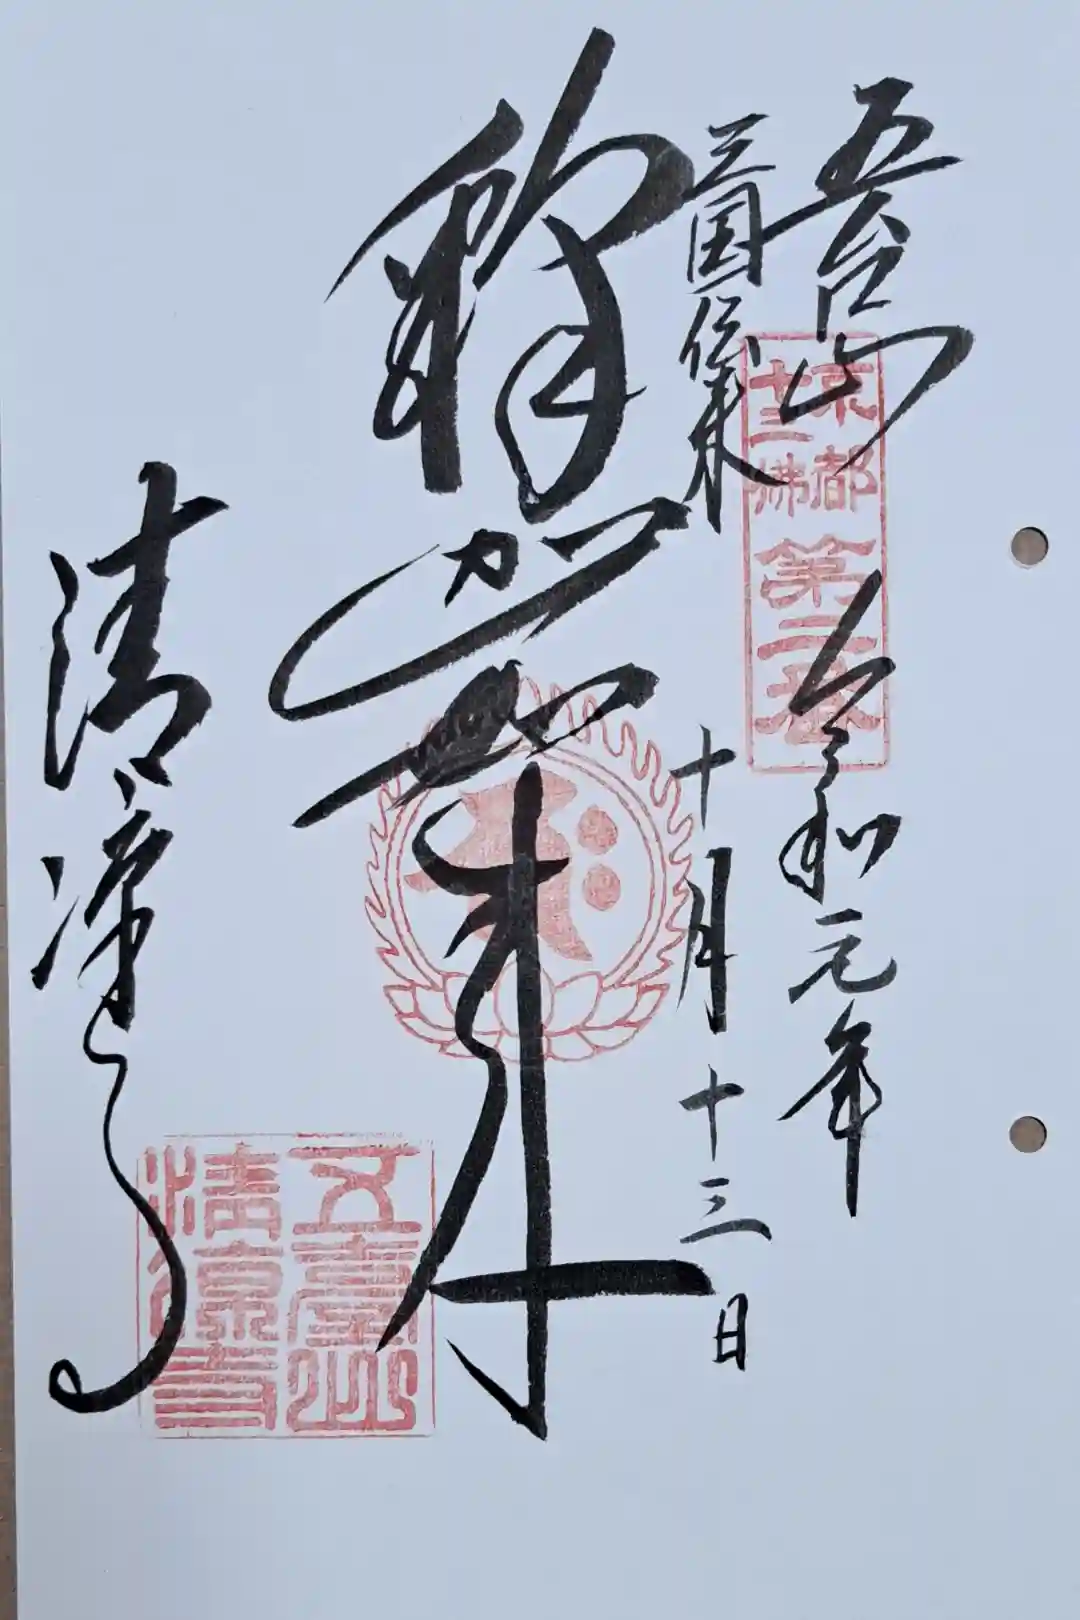 五台山
三国伝来
京都
十三佛
第二番
令和元年
十月十三日
釈迦如来
清凉寺
五臺山
清凉寺